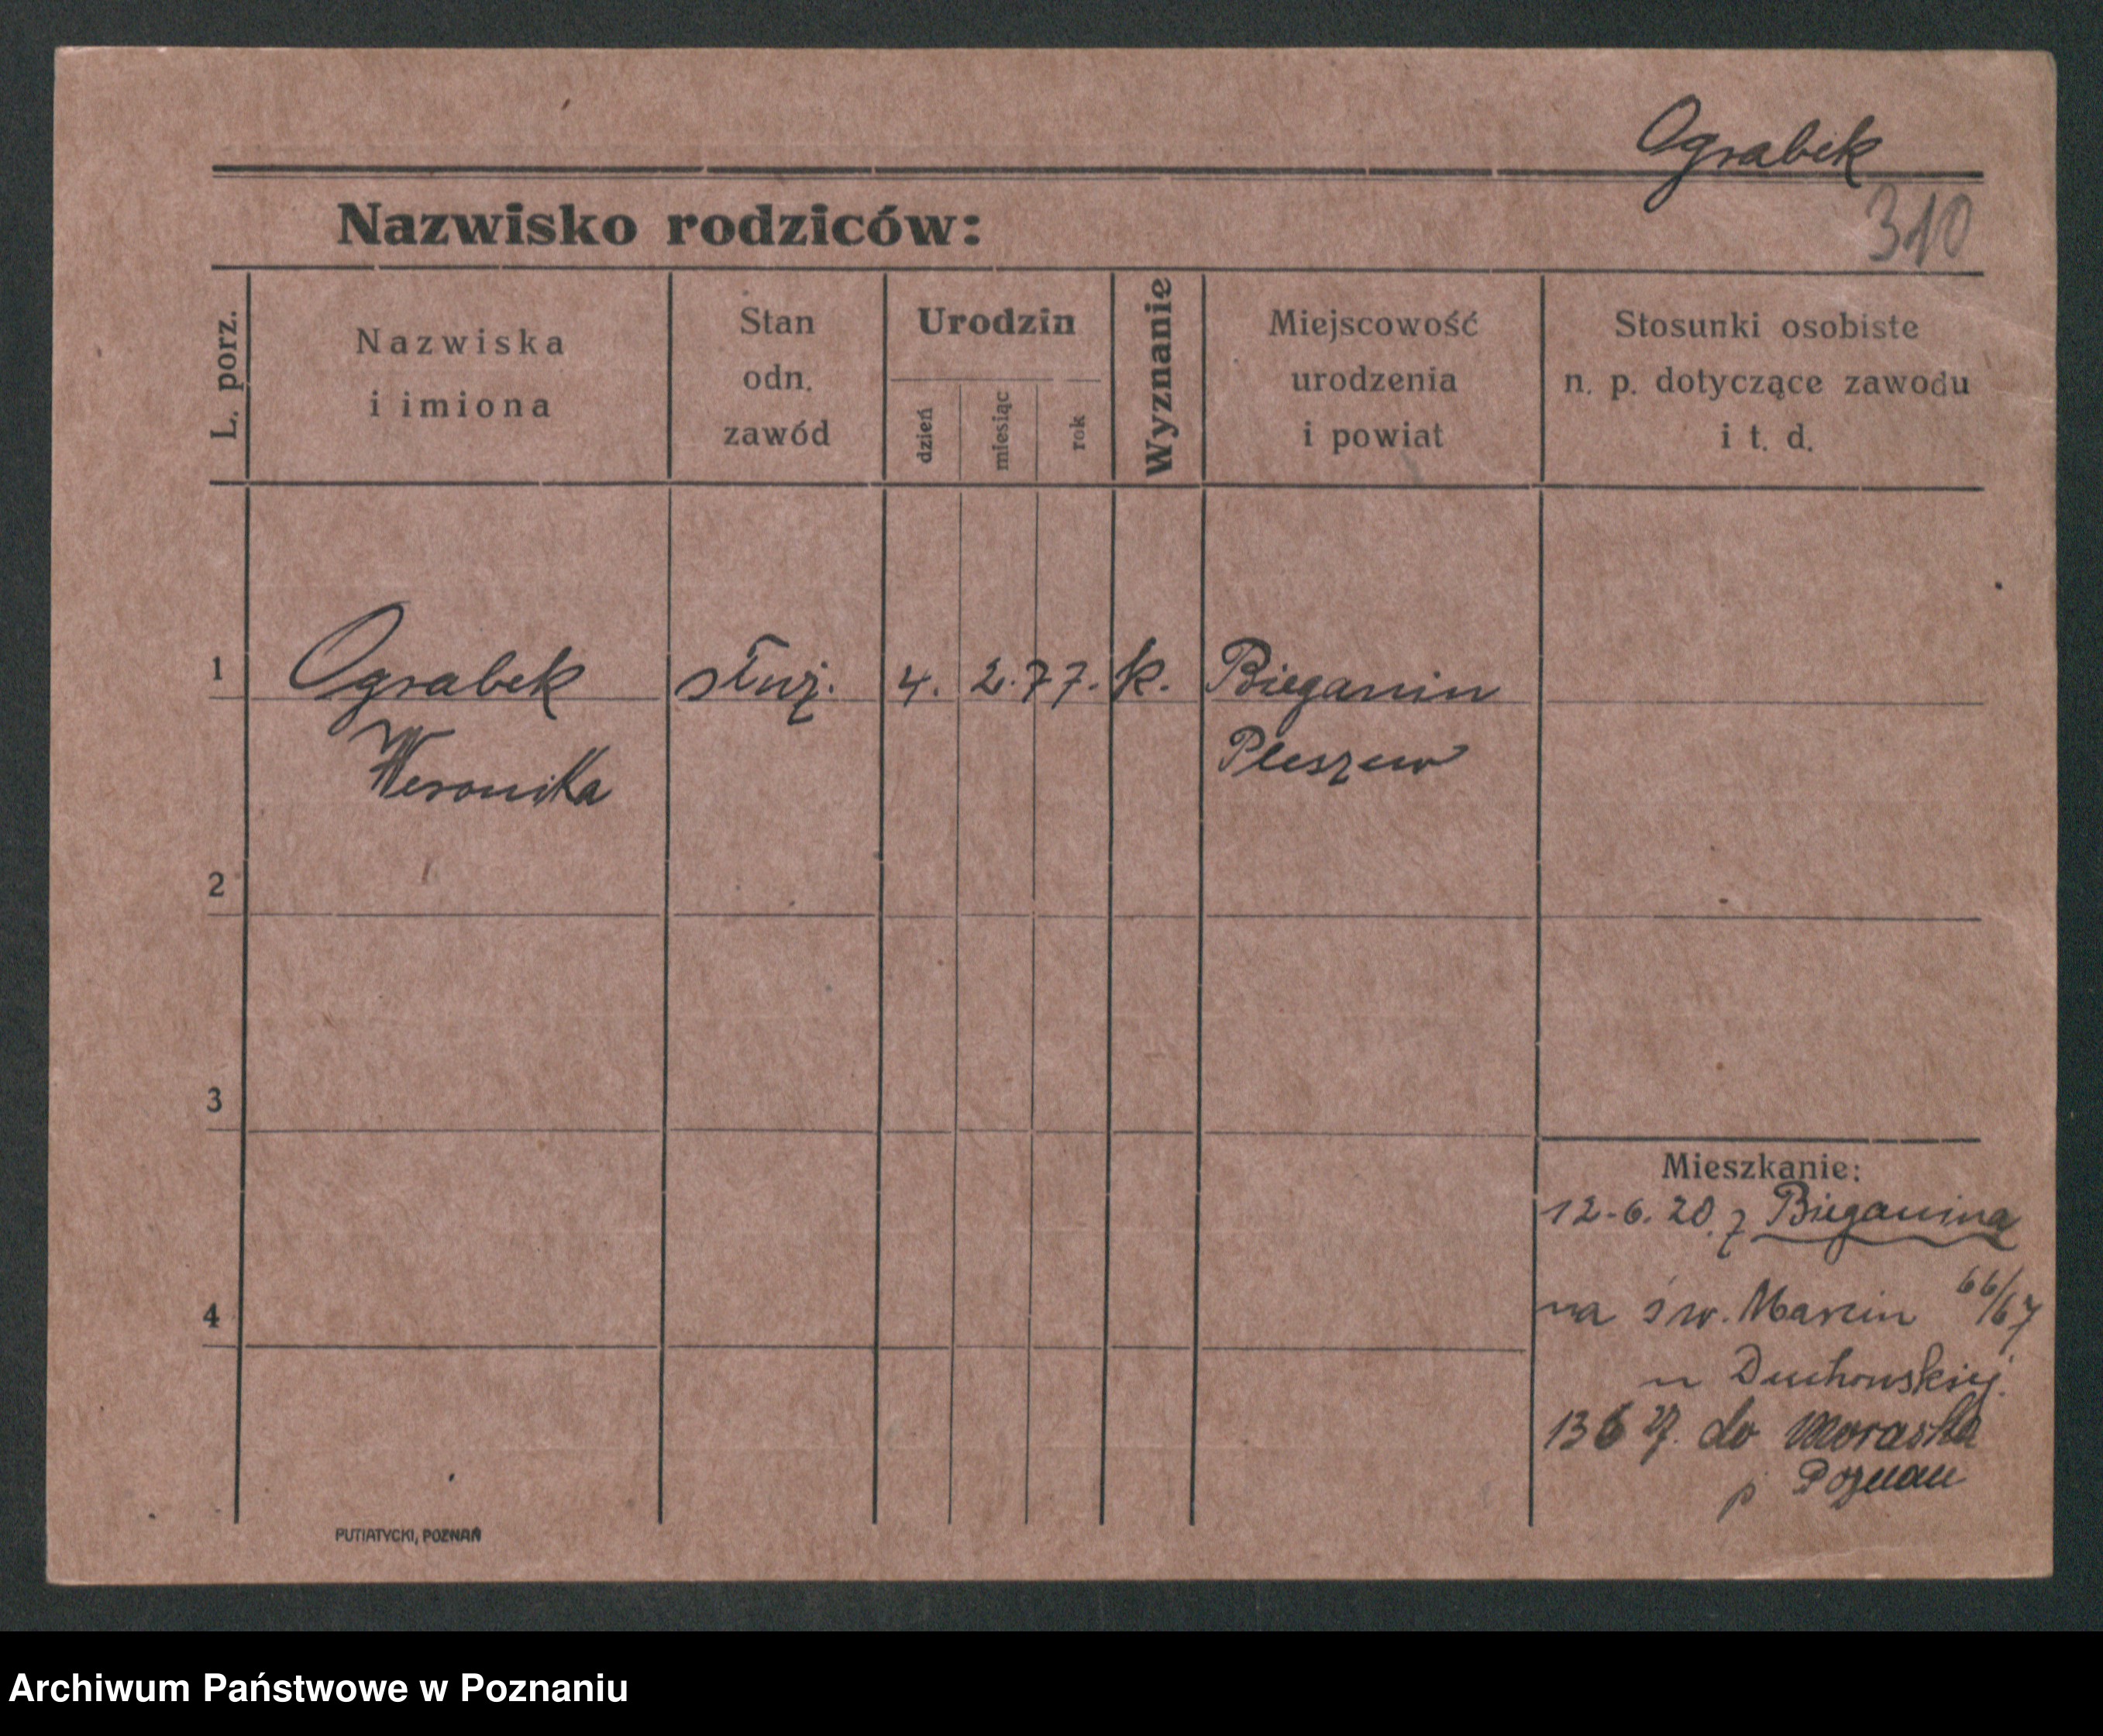 Ograbek
310
Nazwisko rodziców:
L. porz.
Nazwiska
i imiona
Stan
odn.
zawód
Urodzin
dzień
miesiąc
rok
Wyznanie
Miejscowość
urodzenia
i powiat
Stosunki osobiste
n. p. dotyczące zawodu
i t. d.
1 Ograbek służ. 4. 2. 77. k. Bieganin
Weronika Pleszew
2
3
4
Mieszkanie:
12-6. 20. z Bieganina
na św. Marcin 66/67
u Duchowskiej.
13 6 27. do Moraska
p Poznan
PUTIATYCKI, POZNAŃ
Archiwum Państwowe w Poznaniu